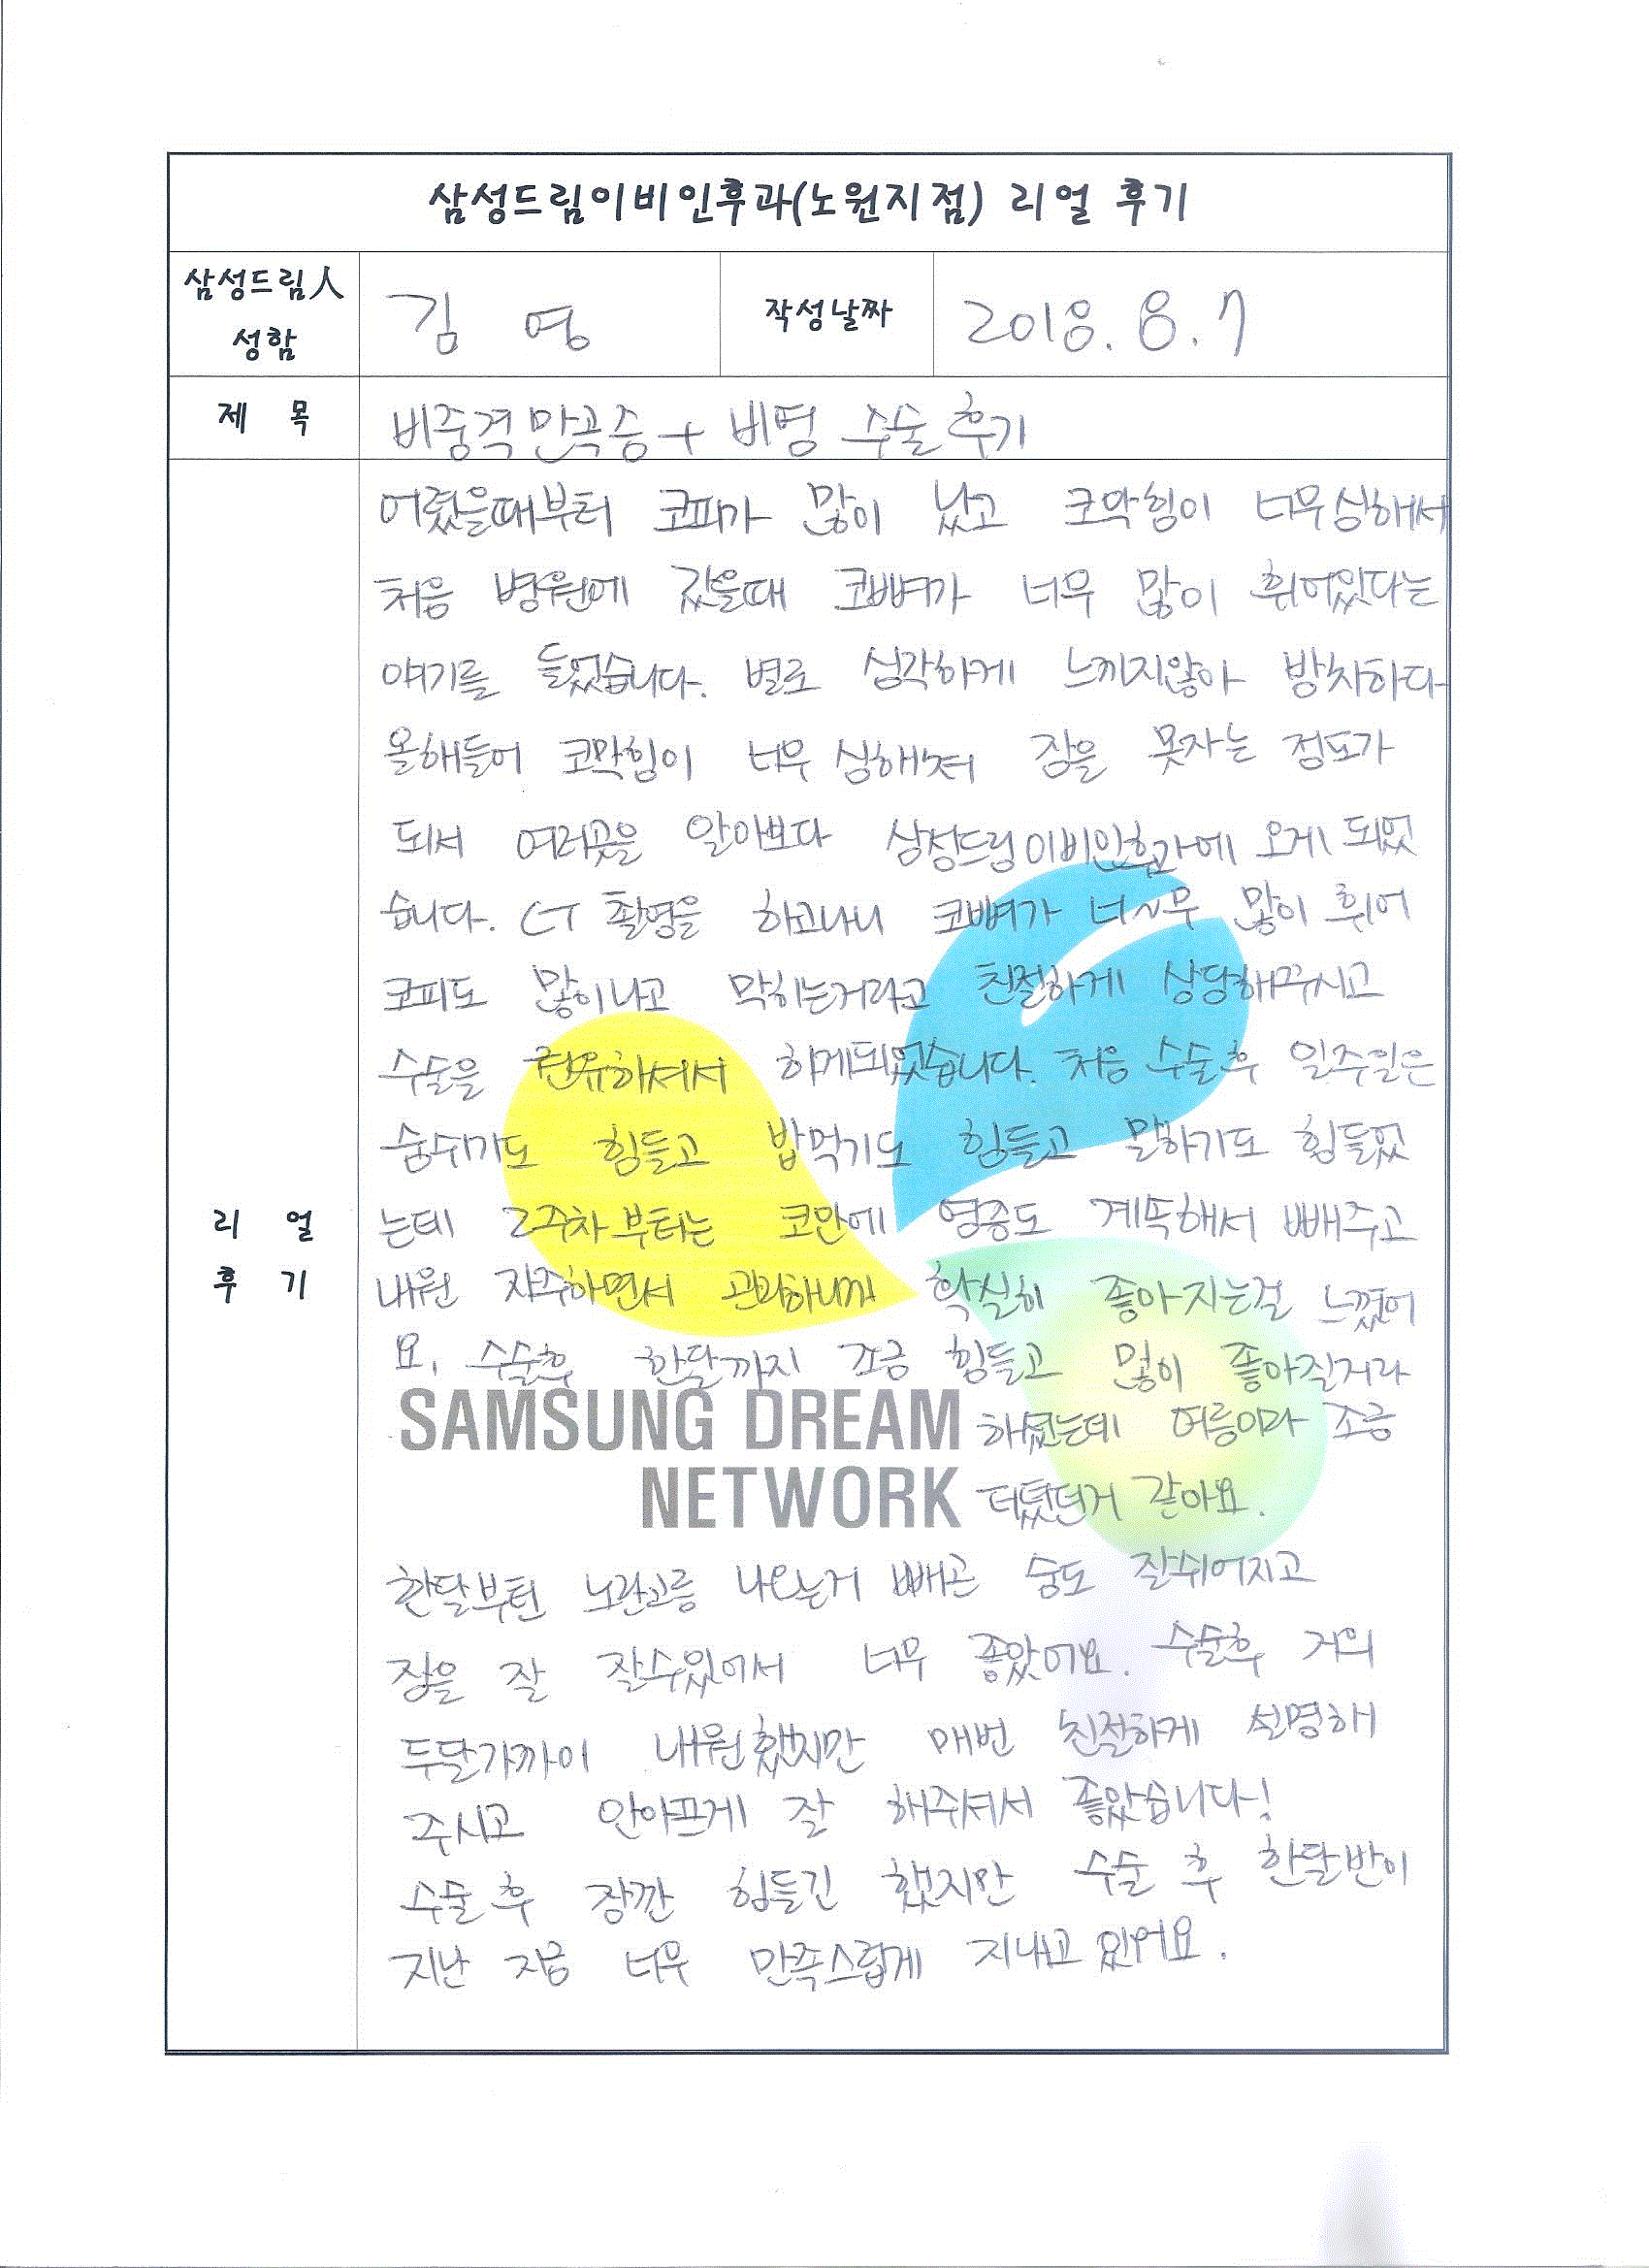 삼성드림이비인후과(노원지점) 리얼 후기
삼성드림人
성함
김 영
작성날짜
2018. 8. 7
제 목
비중격만곡증 + 비염 수술 후기
리 얼
후 기
어렸을때부터 코피가 많이 났고 코막힘이 너무심해서
처음 병원에 갔을때 코뼈가 너무 많이 휘어있다는
얘기를 들었습니다. 별로 심각하게 느끼지않아 방치하다
올해들어 코막힘이 너무 심해져 잠을 못자는 정도가
되서 여러곳을 알아보다 삼성드림이비인후과에 오게 되었
습니다. CT 촬영을 하고나니 코뼈가 너~무 많이 휘어
코피도 많이나고 막히는거라고 친절하게 상담해주시고
수술을 권유하셔서 하게되었습니다. 처음 수술후 일주일은
숨쉬기도 힘들고 밥먹기도 힘들고 말하기도 힘들었
는데 2주차부터는 코안에 염증도 계속해서 빼주고
내원 자주하면서 관리하니까 확실히 좋아지는걸 느꼈어
요. 수술후 한달까지 조금 힘들고 많이 좋아질거라
하셨는데 여름이라 조금
더뎠던거 같아요.
SAMSUNG DREAM
NETWORK
한달부턴 노란고름 나오는거 빼곤 숨도 잘쉬어지고
잠을 잘 잘수있어서 너무 좋았어요. 수술후 거의
두달가까이 내원했지만 매번 친절하게 설명해
주시고 안아프게 잘 해주셔서 좋았습니다!
수술 후 잠깐 힘들긴 했지만 수술 후 한달반이
지난 지금 너무 만족스럽게 지내고 있어요.